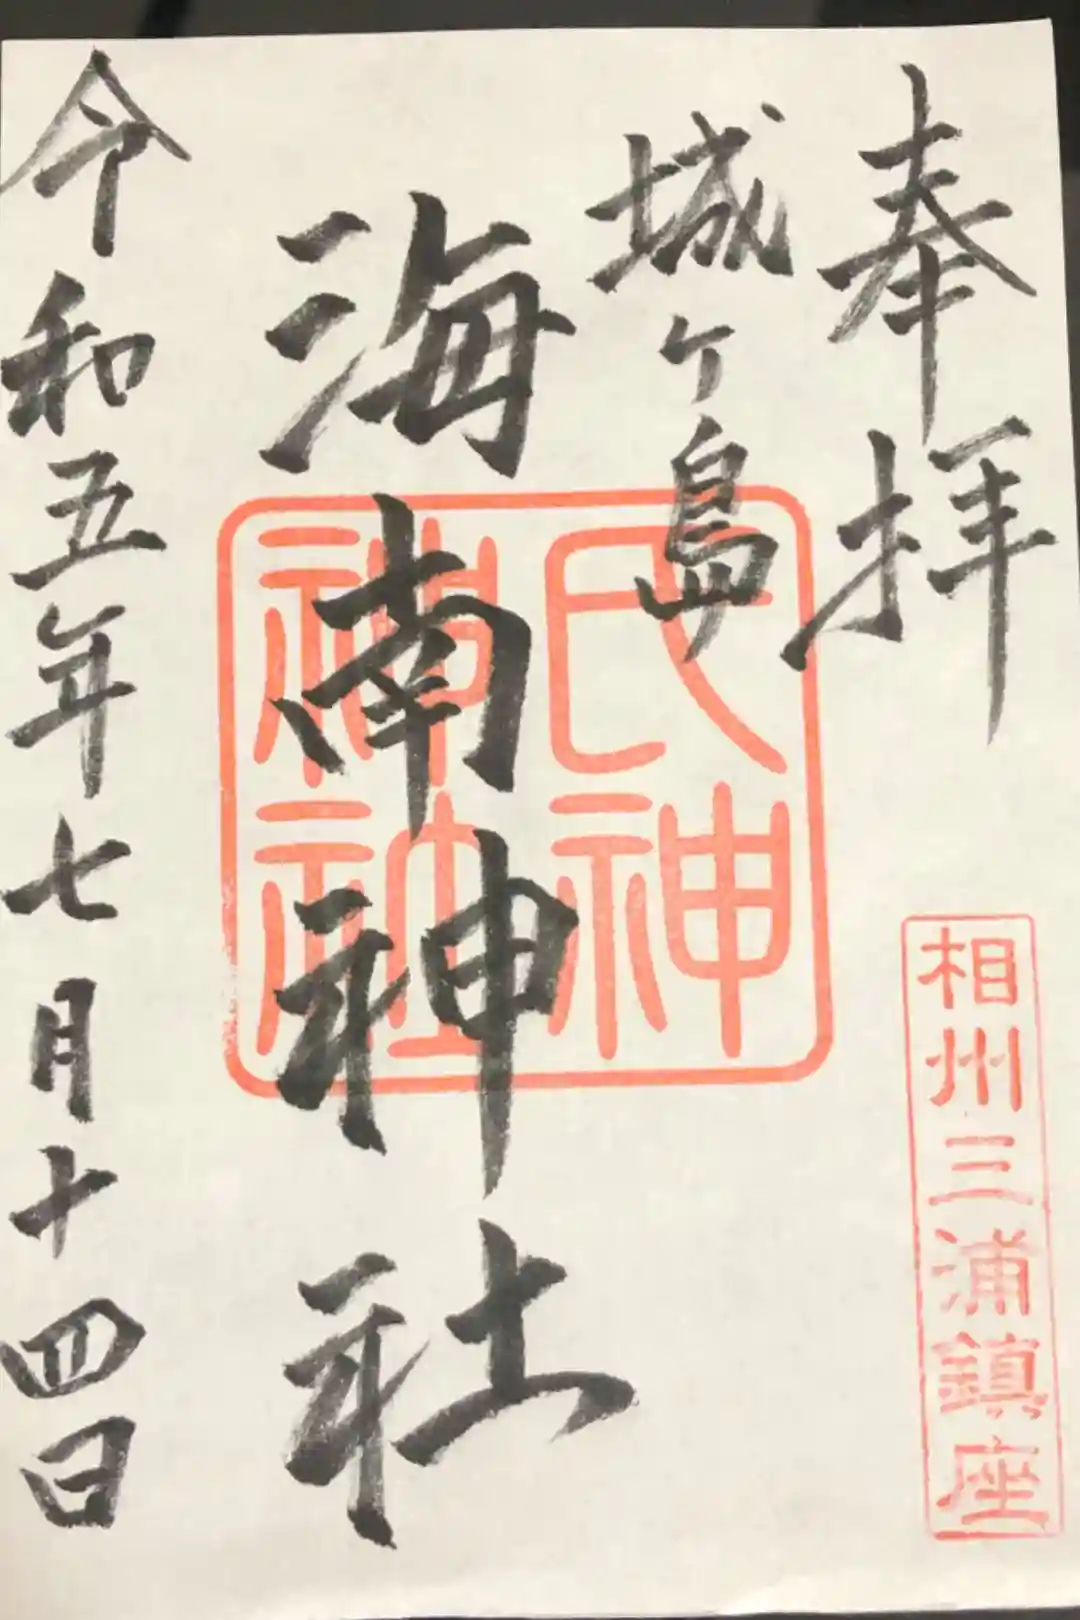 奉拝
相州三浦鎮座
城ヶ島
海南神社
氏神
神社
令和五年七月十四日